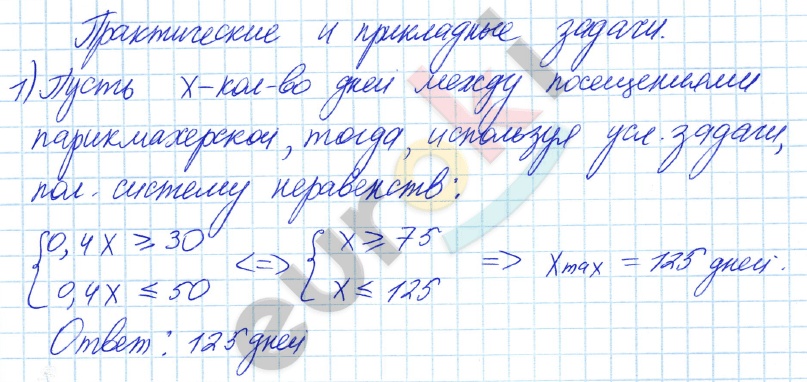 Практические и прикладные задачи.
1) Пусть x – кол-во дней между посещениями
парикмахерской, тогда, используя усл. задачи,
пол. систему неравенств:
{ 0,4x ≥ 30 <=> { x ≥ 75 => xmax = 125 дней.
0,4x ≤ 50 x ≤ 125
Ответ: 125 дней
euroki